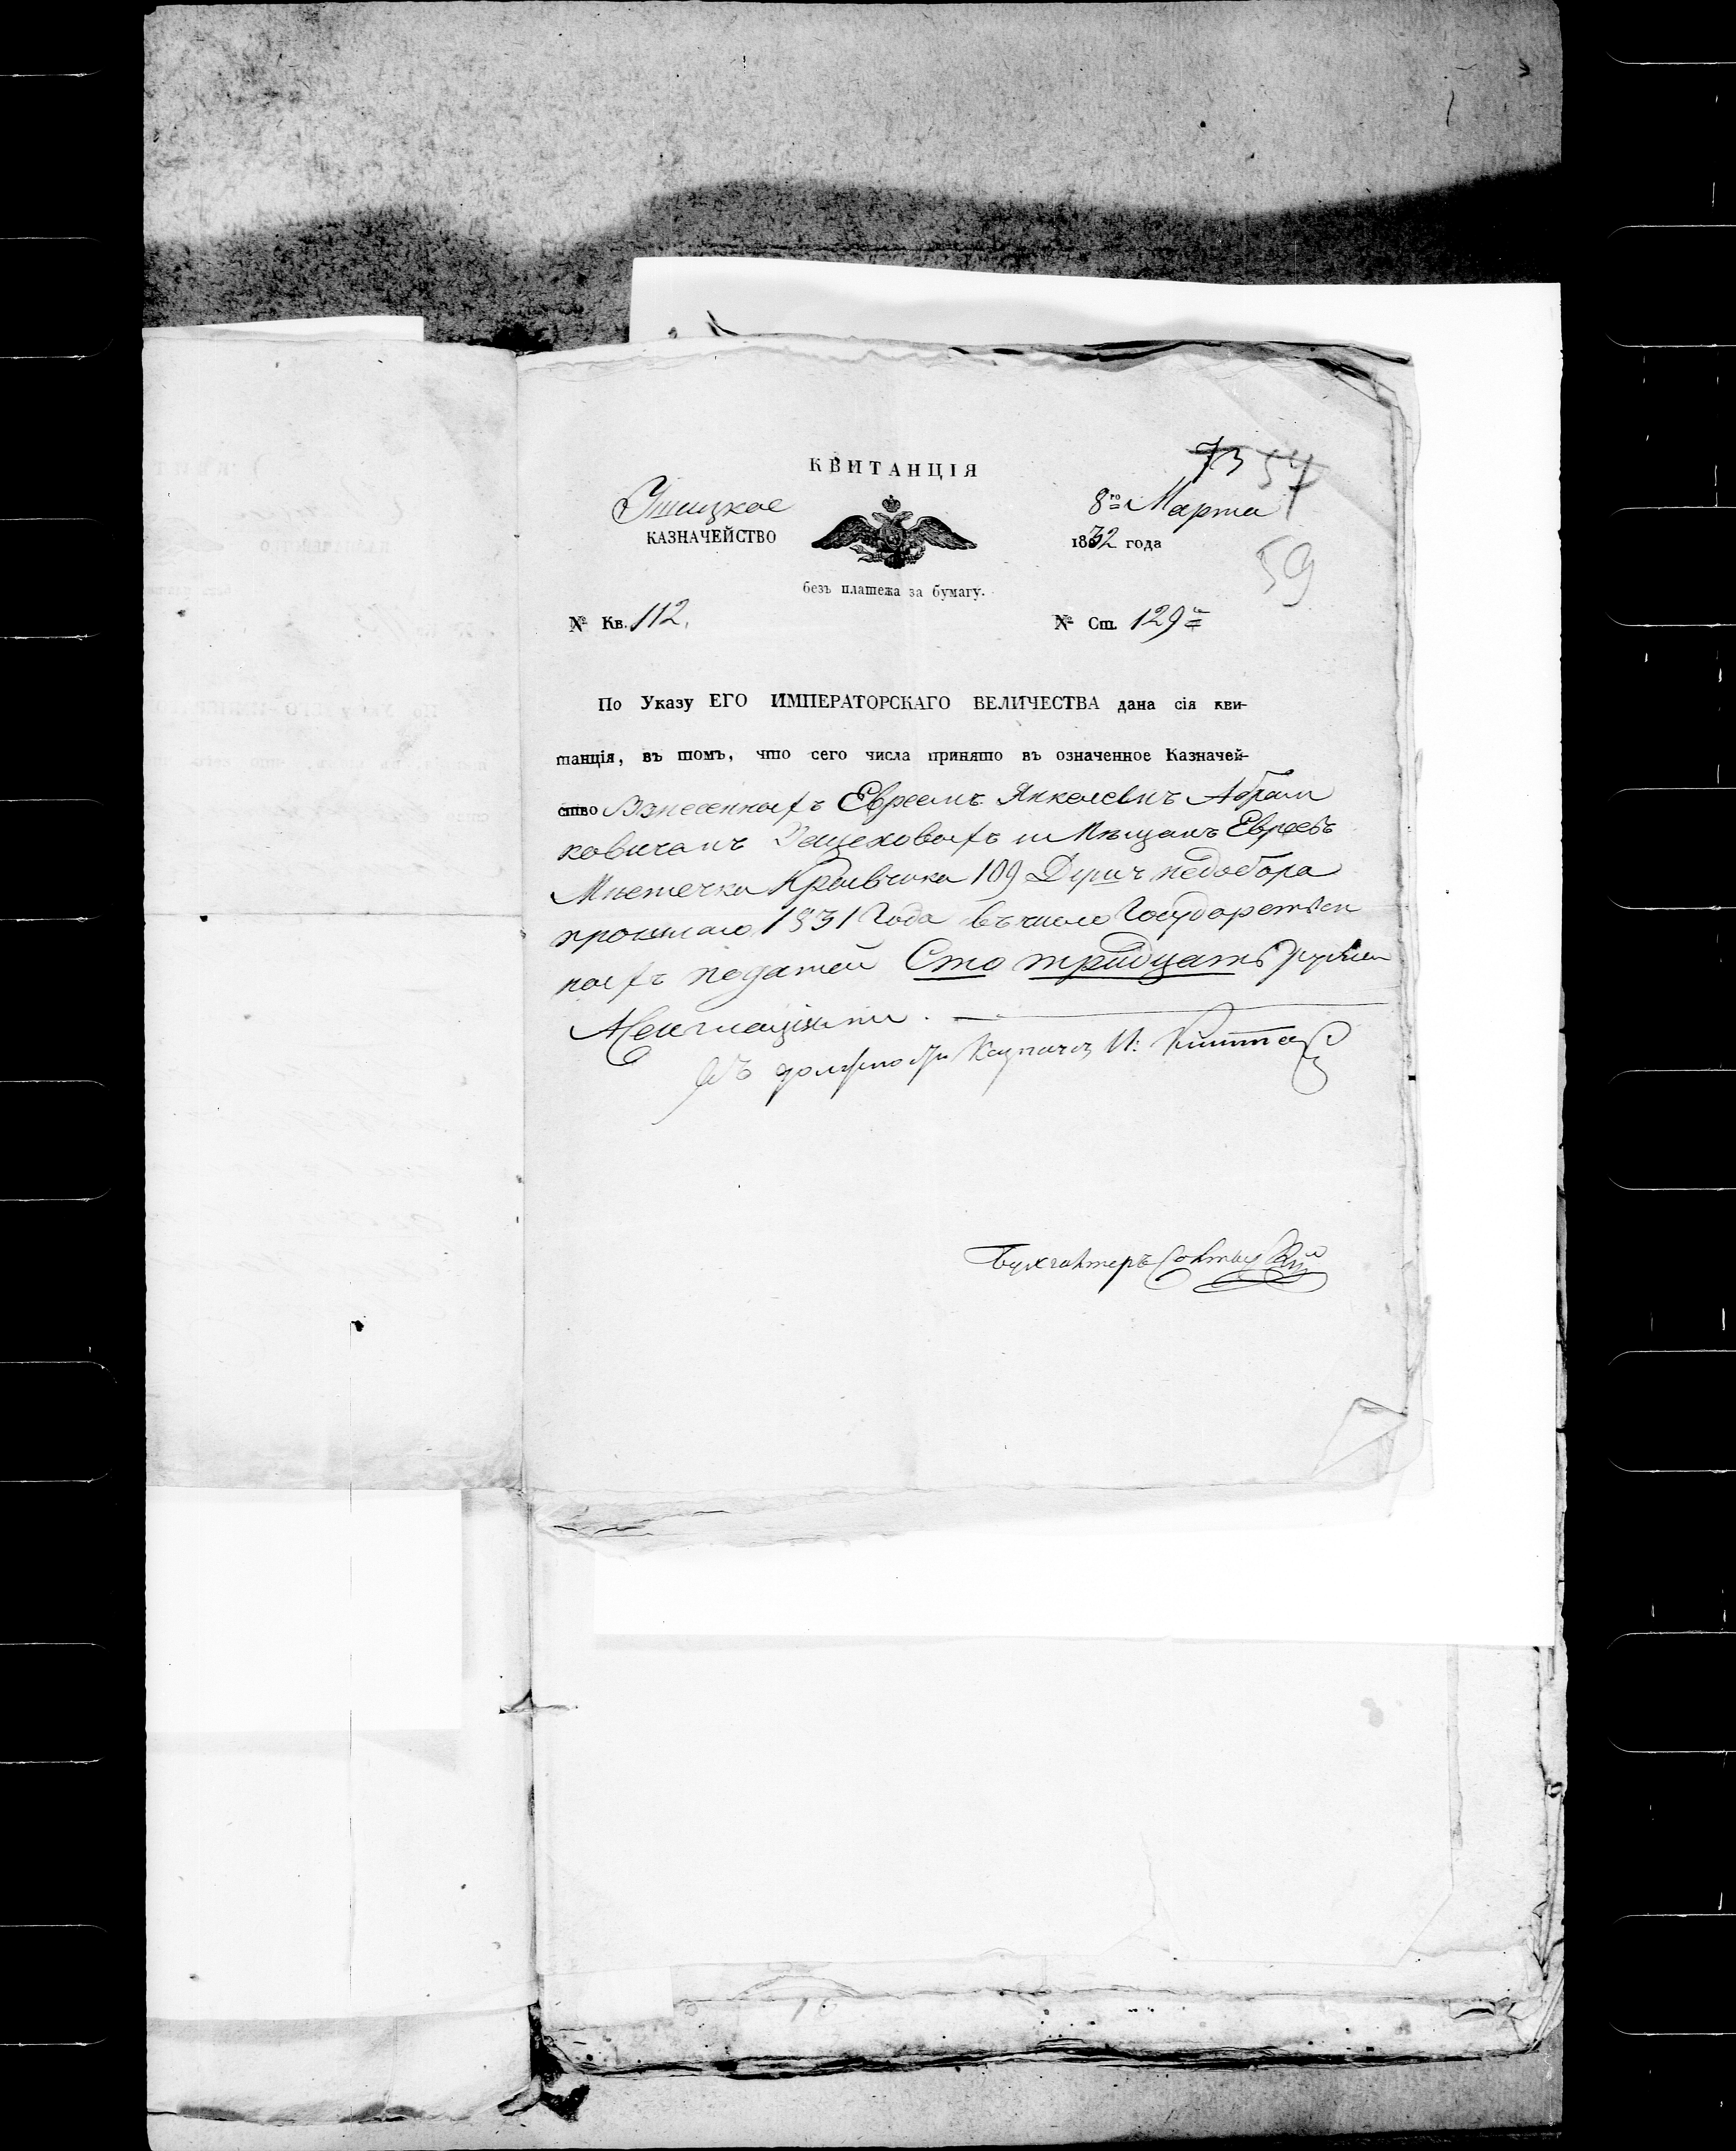 73 57
КВИТАНЦІЯ
Ушицкое
8го Марта
КАЗНАЧЕЙСТВО
1832 года
59
безъ платежа за бумагу.
№ Кв. 112.
№ Ст. 129
По Указу ЕГО ИМПЕРАТОРСКАГО ВЕЛИЧЕСТВА дана сія кви-
танція, въ томъ, что сего числа принято въ означенное Казначей-
ство Взнесенныхъ Евреемъ Абрам
ковичемъ съ Мѣщанъ Евреевъ
Мѣстечка 109 Душъ недобора
прошлаго 1831 Года въ число Государствен
ныхъ податей Сто тридцать рублей
Ассигнаціями.
Въ должности Казначея И.
Бухгалтеръ